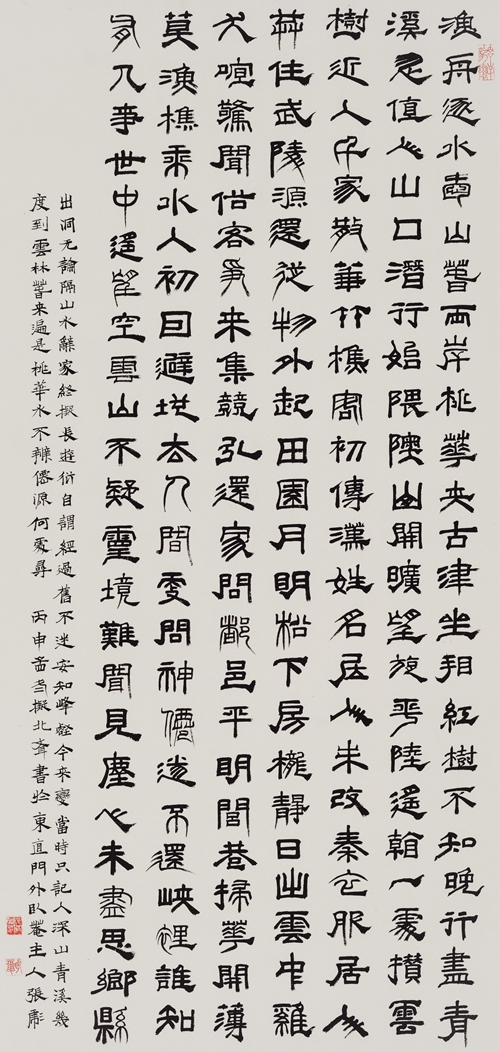 漁舟逐水愛山萅兩岸桃華夾古津坐看紅樹不知晚行盡青
溪忽值人山口潛行始隈隩山開曠望旋平陸遙看一處攢雲
樹近入千家散華竹樵客初傳漢姓名居人未改秦衣服居人
共住武陵源還從物外起田園月明松下房櫳靜日出雲中雞
犬喧驚聞俗客爭來集競引還家問都邑平明閭巷掃華開薄
莫漁樵乘水入初因避地去人間更問神僊遂不還峽裡誰知
有人事世中遙望空雲山不疑靈境難聞見塵心未盡思鄉縣
出洞无論隔山水辭家終擬長遊衍自謂經過舊不迷安知峰壑今來變當時只記入深山青溪幾
度到雲林萅來遍是桃華水不辨僊源何處尋 丙申擬北齊書於東直門外臥菴主人張彪